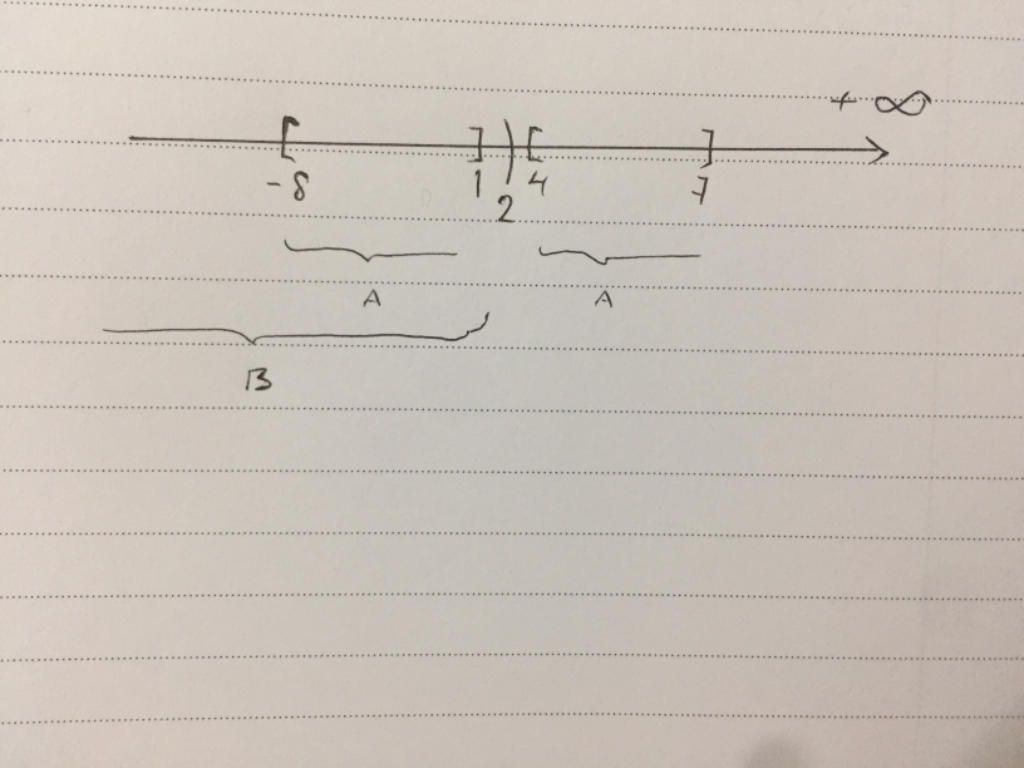 + ∞
[ ] ) [ ]
-8 1 2 4 7
A A
B